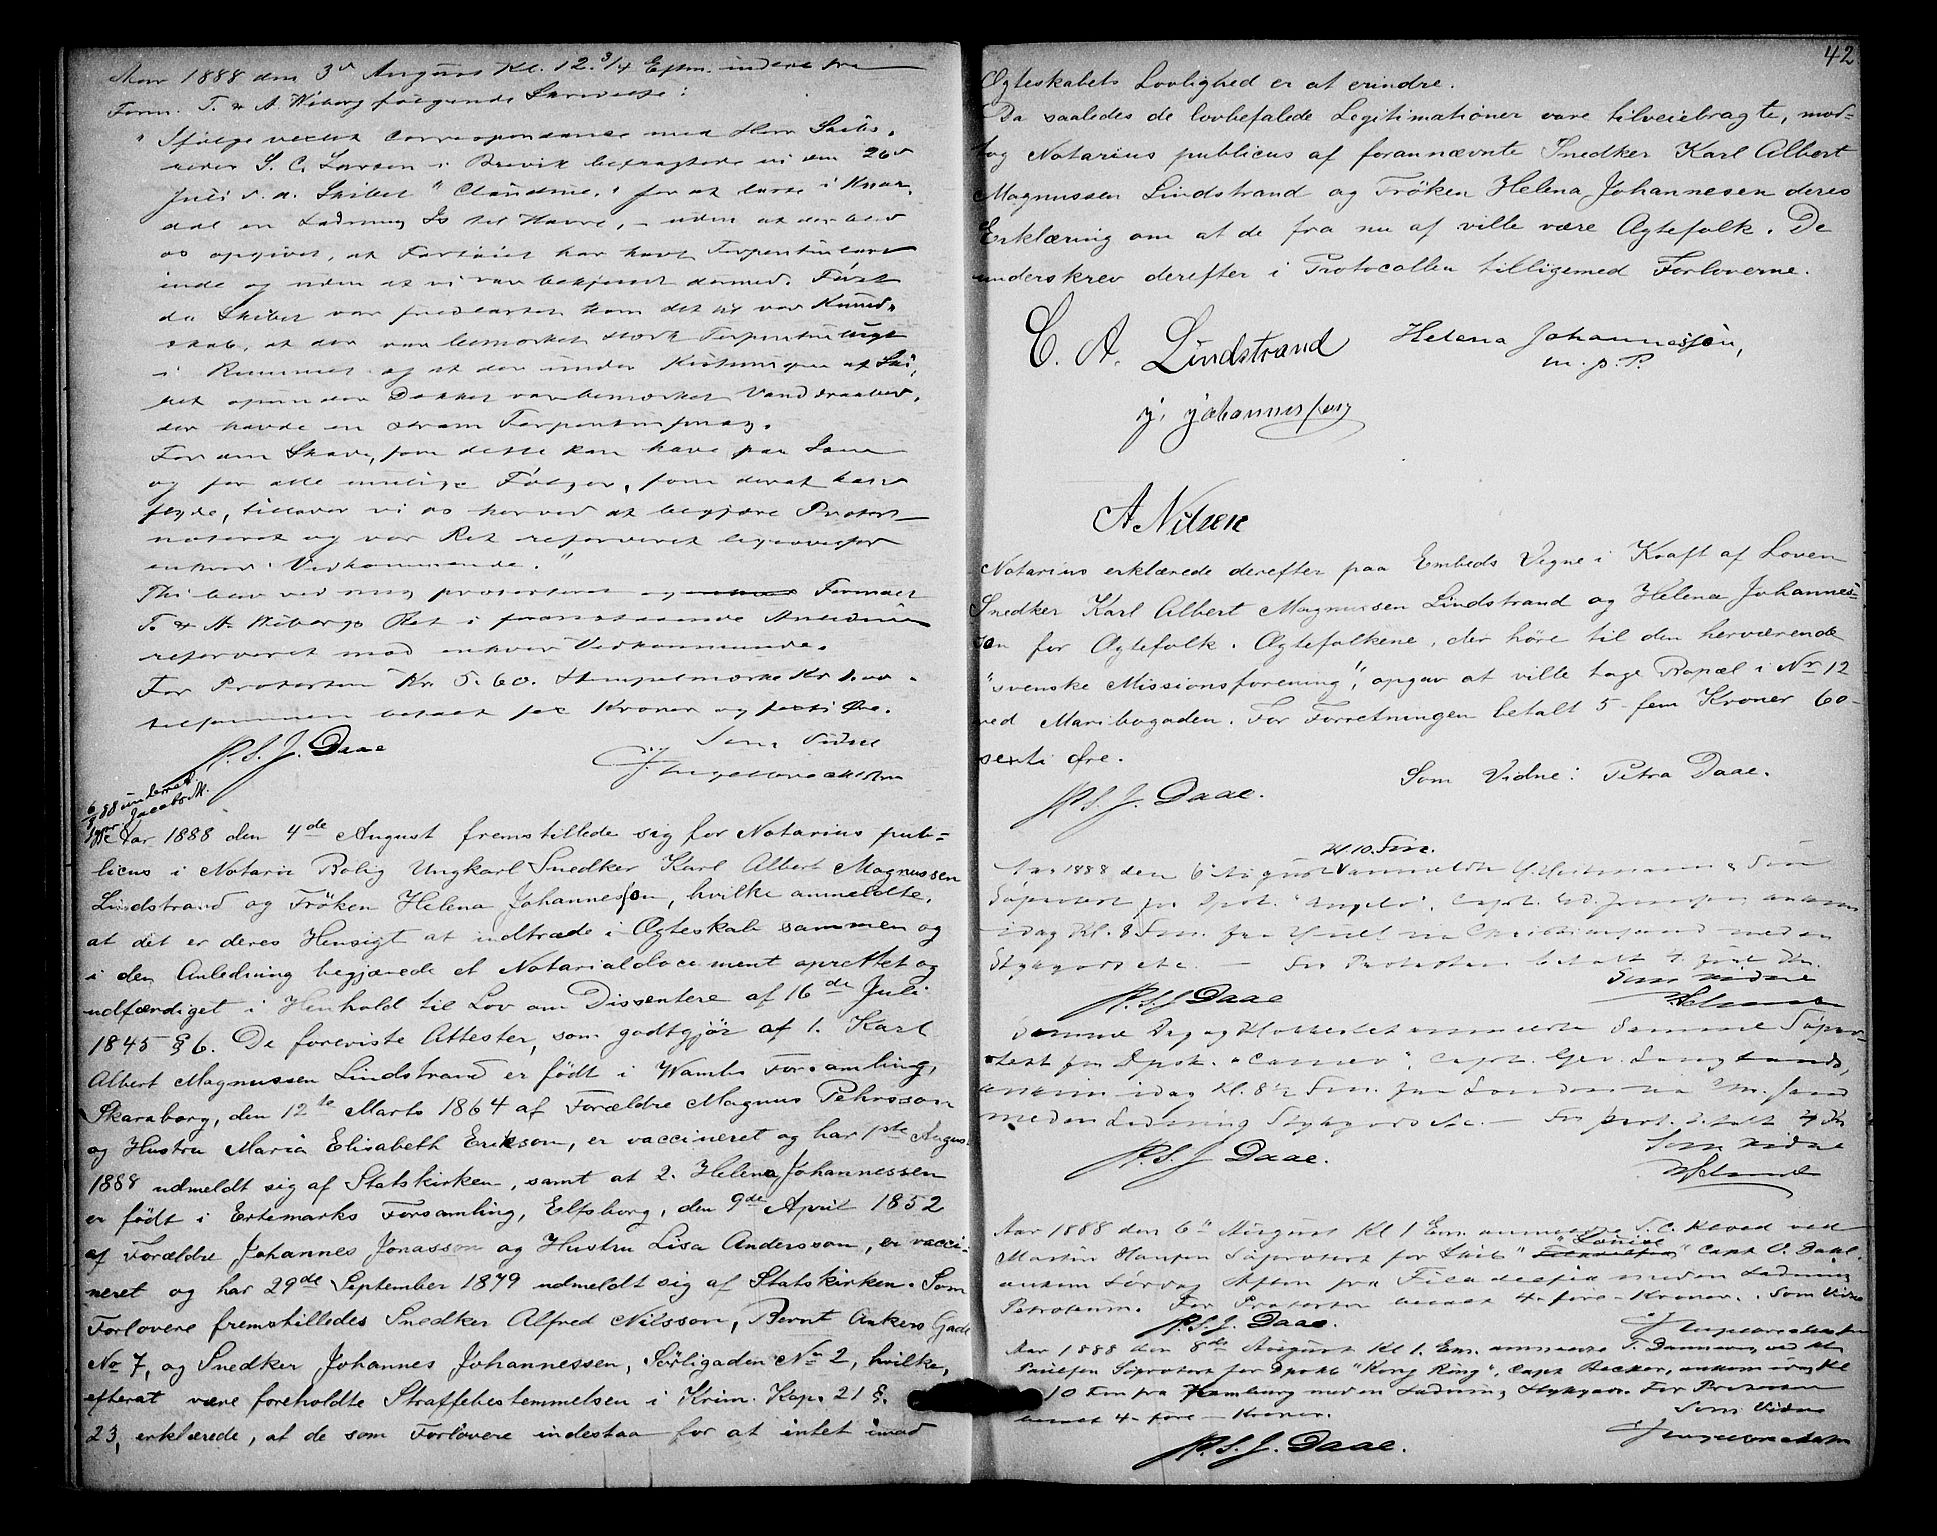 Aar 1888 den 3de August Kl. 12 3/4 Eftm. indera fra
Firm. T. & A. Wiborg følgende Skrivelse:
"Ifølge vexlet Correspondance med Herr Skibs-
reder S. C. Larsen i Brevik befragtede vi den 26de
Juli d. a. Skibet "Claudine," for at laste i Knar-
dal en Ladning Is til Havre, – uden at der blev
os opgivet, at Fartøiet har havt Terpentinlast
inde og uden at vi var bekjendt dermed. Først
da Skibet var fuldlastet kom det til vor Kund-
skab, at der var bemærket stærk Terpentinlugt
i Rummet og at der under af Ski-
bet ovenn der Dækket var bemærket Vanddraaber,
der havde en stram Terpentinsmag.
For den Skade, som dette kan have paa Isen
og for alle mulige Følger, som deraf kan
flyde, tillader vi os herved at begjære Protest
noteret og vor Ret reserveret ligeoverfor
enhver Vedkommende."
Thi blev ved mig protesteret og Firmaet
T. & A. Wiborgs Ret i foranstaaende Anledning
reserveret mod enhver Vedkommende.
For Protesten Kr. 5.60. Stempelmærke Kr 1.00.
tilsammen betalt sex Kroner og sexti Øre.
N. S. J. Daae Som Vidne

6/8 88 underret
Jacobs M.
Aar 1888 den 4de August fremstillede sig for Notarius pub-
licus i Notarii Bolig Ungkarl Snedker Karl Albert Magnussen
Lindstrand og Frøken Helena Johannesson, hvilke anmeldte,
at det er deres Hensigt at indtræde i Ægteskab sammen og
i den Anledning begjærede et Notarialdocument oprettet og
udfærdiget i Henhold til Lov om Dissentere af 16de Juli
1845 § 6. De foreviste Attester, som godtgjør af 1. Karl
Albert Magnussen Lindstrand er født i Wambs Forsamling,
Skaraborg, den 12te Marts 1864 af Forældre Magnus Pehrsson
og Hustru Maria Elisabeth Erikson, er vaccineret og har 1ste August
1888 udmeldt sig af Statskirken, samt at 2. Helena Johannessen
er født i Ertemarks Forsamling, Elfsborg, den 9de April 1852
af Forældre Johannes Jonasson og Hustru Lisa Andersson, er vacci-
neret og har 29de September 1879 udmeldt sig af Statskirken. Som
Forlovere fremstilledes Snedker Alfred Nilsson, Bernt Ankers Gade
No 7, og Snedker Johannes Johannessen, Sørligaden No 2, hvilke,
efterat være foreholdte Straffebestemmelsen i Krim. Kap. 21 §.
23, erklærede, at de som Forlovere indestaa for at intet imod
42
Ægteskabets Lovlighed er at erindre.
Da saaledes de lovbefalede Legitimationer vare tilveiebragte, mod-
tog Notarius publicus af forannævnte Snedker Karl Albert
Magnussen Lindstrand og Frøken Helena Johannesen deres
Erklæring om at de fra nu af ville være Ægtefolk. De
underskrev derefter i Protocollen tilligemed Forloverne.
C. A. Lindstrand Helena Johannesson,
m. p. P.
J. Johannesson
A Nilsen
Notarius erklærede derefter paa Embeds Vegne i Kraft af Loven
Snedker Karl Albert Magnussen Lindstrand og Helena Johannes-
son for Ægtefolk. Ægtefolkene, der høre til den herværende
"svenske Missionsforening", opgav at ville tage Bopæl i No 12
ved Maribogaden. For Forretningen betalt 5 fem Kroner 60-
sexti Øre.
Som Vidne: Petra Daae.
N. S. J. Daae.
Kl. 10 Fm.
Aar 1888 den 6 August anmeldte H. Heitmann & Søn
Søprotest for Dpsk. "Angelo", Capt. ankom
idag Kl. 8 Fm. fra Hull via Christianssand med en
Stykgods etc. – For Protesten betalt 4 fire Kr.
Som Vidne
N. S. J Daae
Samme Dag og Klokkeslet anmeldte Samme Søpro-
test for Dpsk. "Cameo", Capt. Geo. Langlands,
ankom idag Kl. 8½ Fm. fra London via Chr. sand
med en Ladning Stykgods etc. – For prot. betalt 4 Kr
Som Vidne
N. S. J Daae.
Aar 1888 den 6te August Kl 1 Em. anmeldte T. C. ved
Martin Hansen Søprotest for Skib "Louise" Capt O. Dahl.
ankom Lørdag Aften fra Filadelfia med en Ladning
Petroleum. For Protesten betalt 4 – fire – Kroner. Som Vidne
N. S. J. Daae.
Aar 1888 den 8de August Kl 1. Em. anmeldte T. ved
Paulsen Søprotest for Dpskb "Kong Ring", Capt Becker, ankom idag Kl
10 Fm fra Hamburg med en Ladning Stykgods. For Protesten
betalt 4 – fire – Kroner. Som Vidne
N. S. J. Daae.